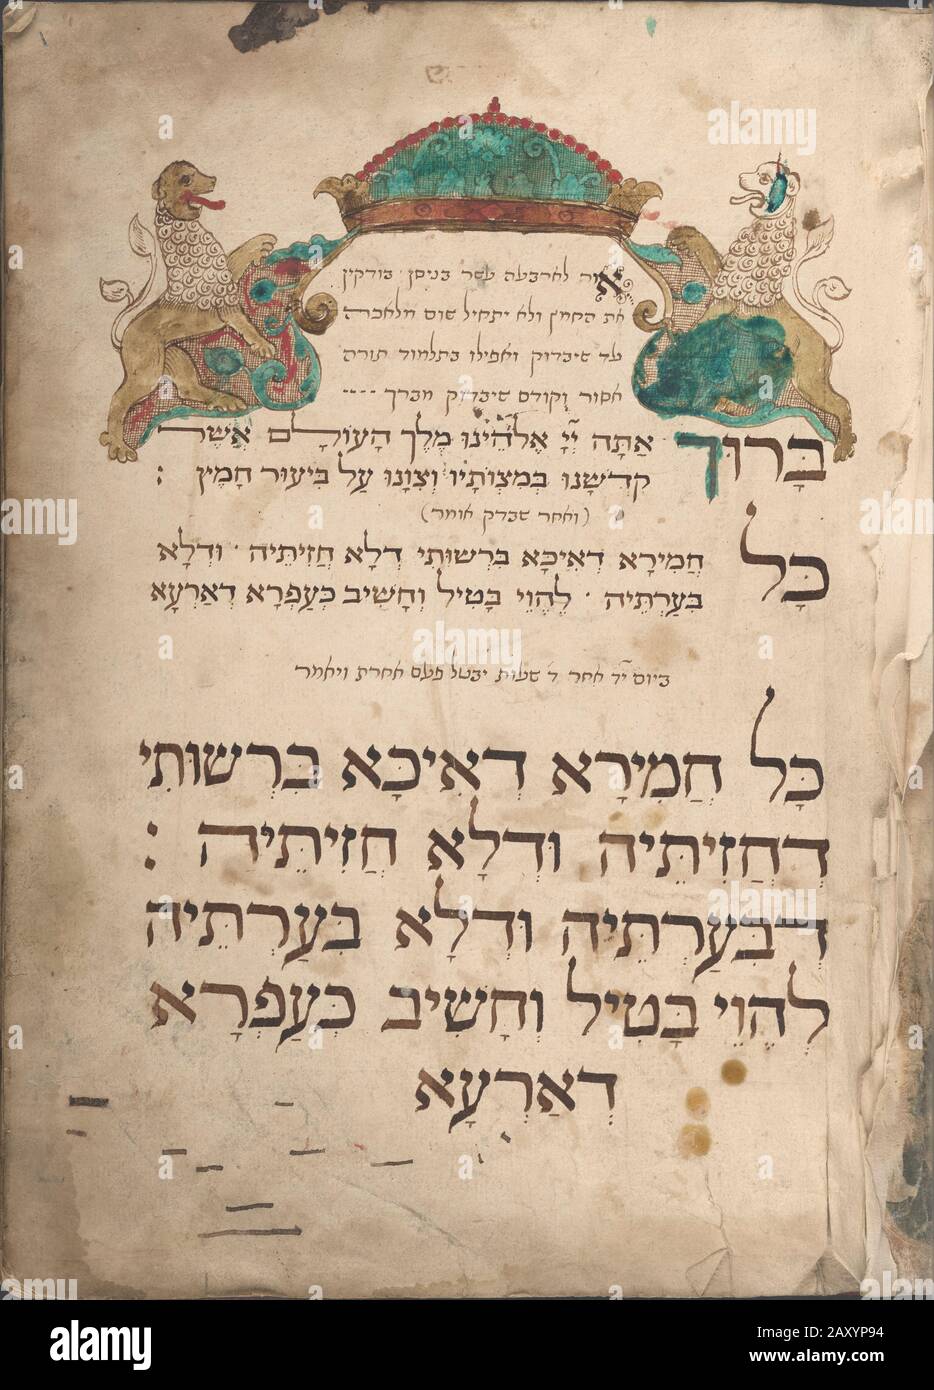 אור לארבעה עשר בניסן בודקין
את החמץ ולא יתחיל שום מלאכה
עד שיבדוק ואפילו בתלמוד תורה
אסור וקודם שיבדוק מברך ----
בָּרוּךְ אַתָּה יְיָ אֱלֹהֵינוּ מֶלֶךְ הָעוֹלָם אֲשֶׁר
קִדְשָׁנוּ בְּמִצְוֹתָיו וְצִוָנוּ עַל בִּיעוּר חָמֵץ :
(ואחר שבדק אומר)
כָּל חֲמִירָא דְאִיכָּא בִּרְשׁוּתִי דְלָא חֲזִיתֵיהּ · וּדְלָא
בִּעַרְתֵּיהּ · לֶהֱוֵי בָּטֵיל וְחָשִׁיב כְּעַפְרָא דְאַרְעָא
ביום י״ד אחר ד׳ שעות יבטל פעם אחרת ויאמר
כָּל חֲמִירָא דְאִיכָּא בִּרְשׁוּתִי
דְחֲזִיתֵּיהּ וּדְלָא חֲזִיתֵּיהּ :
דְבִּעַרְתֵּיהּ וּדְלָא בִּעַרְתֵּיהּ
לֶהֱוֵי בָּטֵיל וְחָשִׁיב כְּעַפְרָא
דְאַרְעָא
alamy
alamy
alamy
alamy
a
Image ID: 2AXYP94
www.alamy.com